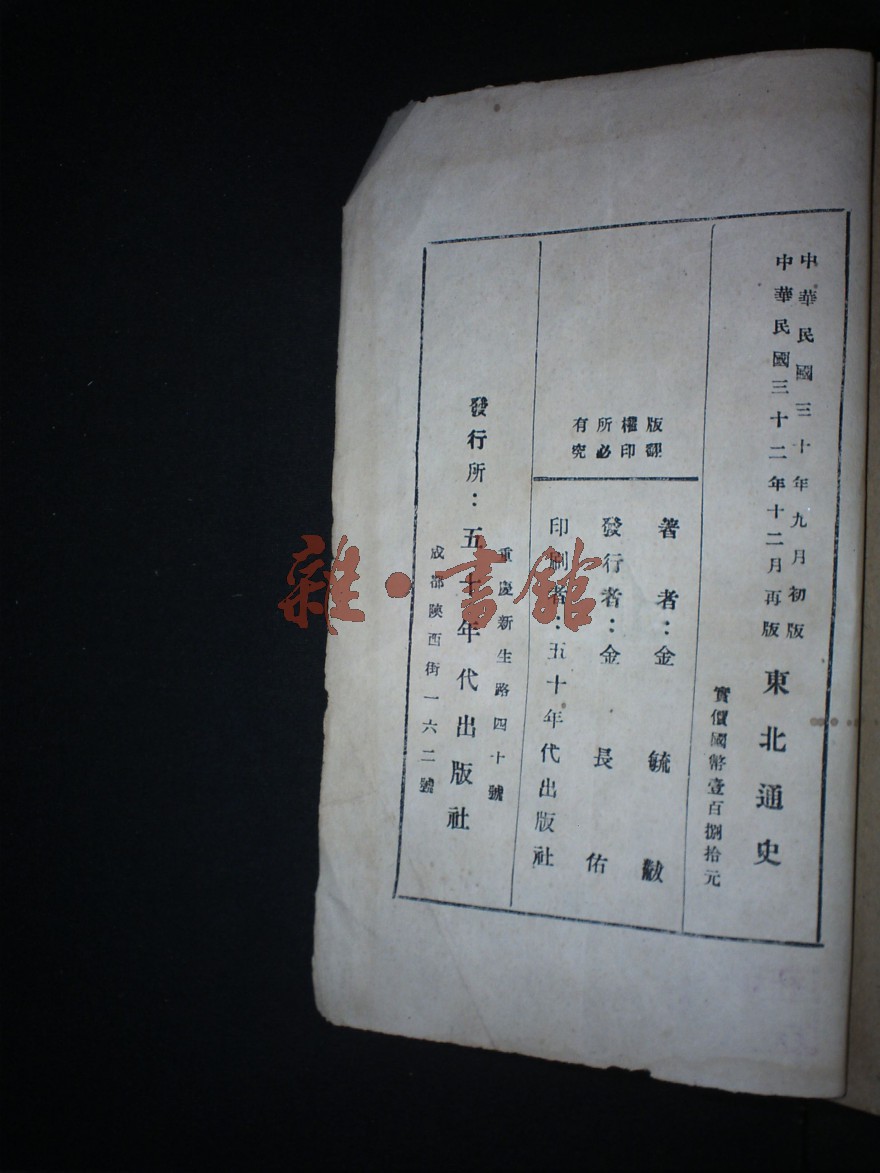 中華民國三十年九月初版
中華民國三十二年十二月再版
東北通史
實價國幣壹百捌拾元
版權所有
翻印必究
著者：金毓黻
發行者：金長佑
印刷者：五十年代出版社
重慶新生路四十號
發行所：五十年代出版社
成都陝西街一六二號
雜·書館